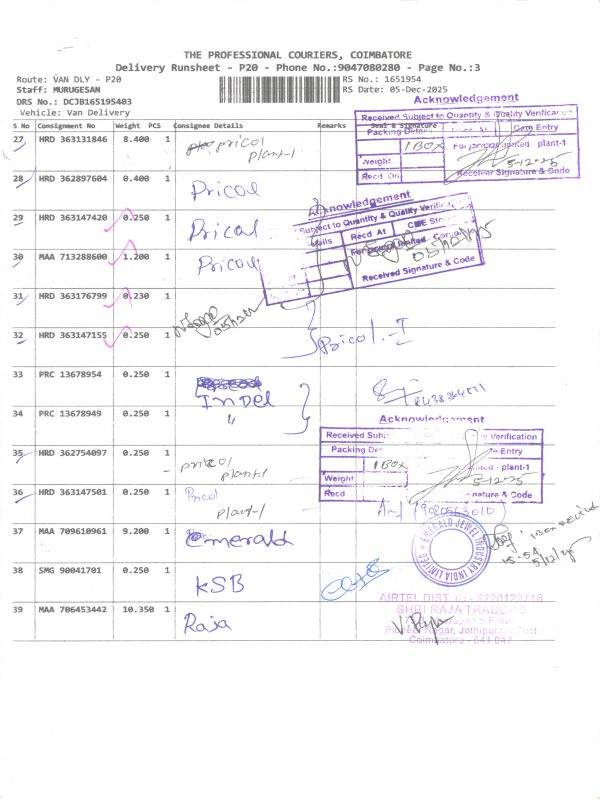 THE PROFESSIONAL COURIERS, COIMBATORE
Delivery Runsheet - P20 - Phone No.:9047080280 - Page No.:3
Route: VAN DLY - P20
RS No.: 1651954
Staff: MURUGESAN
RS Date: 05-Dec-2025
DRS No.: DCJB165195403
Vehicle: Van Delivery
Acknowledgement
Received Subject to Quantity & Quality Verification
Packing Details Recd At Gate Entry
1 BOX For pricol limited plant-1
Weight 5-12-25
Recd On Receiver Signature & Code
S No Consignment No Weight PCS Consignee Details Remarks Seal & Signature
27 HRD 363131846 8.400 1 pricol plant-1
28 HRD 362897604 0.400 1 Pricol
Acknowledgement
Subject to Quantity & Quality Verification
Recd At
Receiver Signature & Code
29 HRD 363147420 0.250 1 Pricol
30 MAA 713288600 1.200 1 Pricol
31 HRD 363176799 0.230 1
32 HRD 363147155 0.250 1 Pricol - I
33 PRC 13678954 0.250 1 INDEL
34 PRC 13678949 0.250 1 "
Acknowledgement
Received Subj Verification
Packing De Gate Entry
1 BOX plant-1
Weight 5-12-25
Recd Signature & Code
35 HRD 362754097 0.250 1 pricol plant-1
36 HRD 363147501 0.250 1 Pricol plant-1
37 MAA 709610961 9.200 1 Emerald
EMERALD JEWEL INDUSTRY INDIA LIMITED
1 Box
15-54
5/12/25
38 SMG 90041701 0.250 1 KSB
39 MAA 706453442 10.350 1 Raja
AIRTEL DIST ID - 8220123716
SHRI RAJA TRADERS
Pioneer Nagar, Jothipuram Post
Coimbatore - 641 047
V. Raja